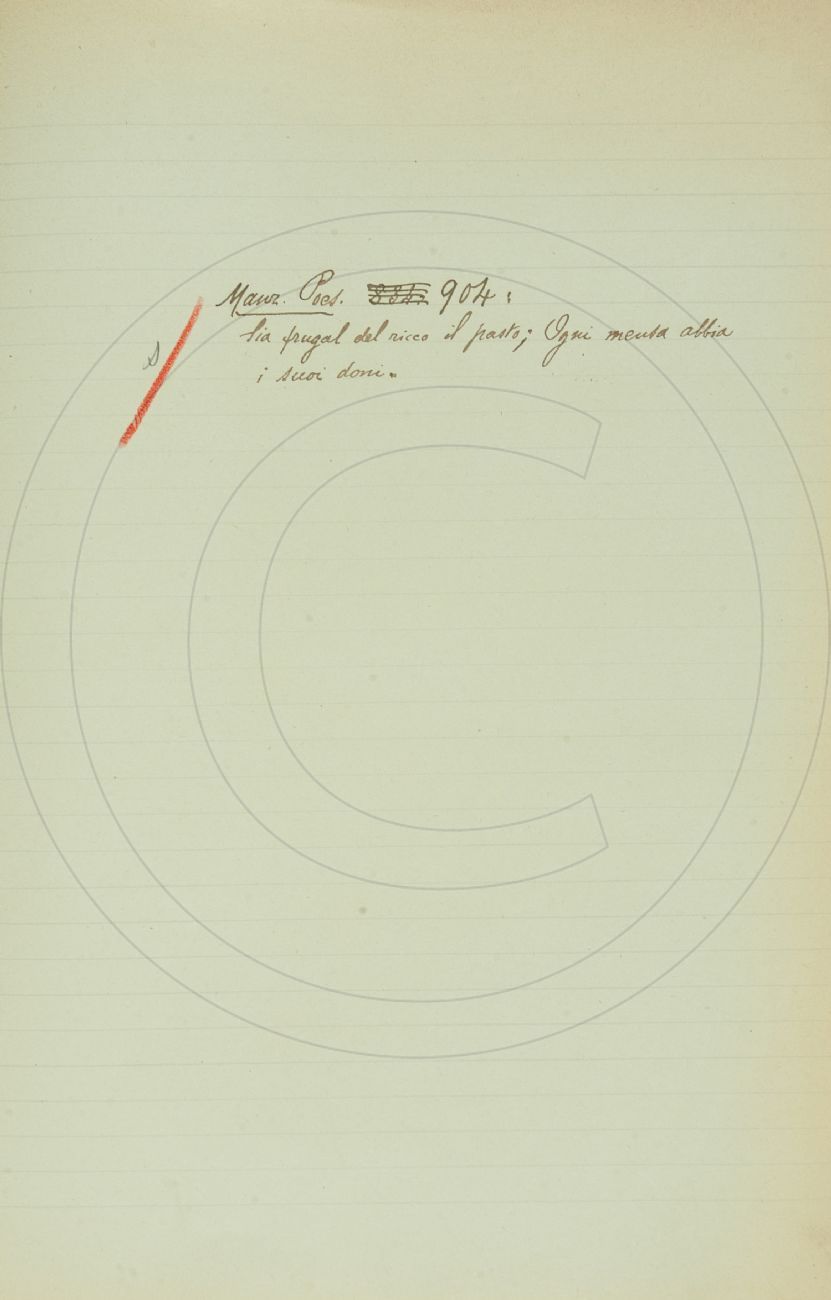 Manz. Poes. 884. 904:
Sia frugal del ricco il pasto; Ogni mensa abbia
i suoi doni.